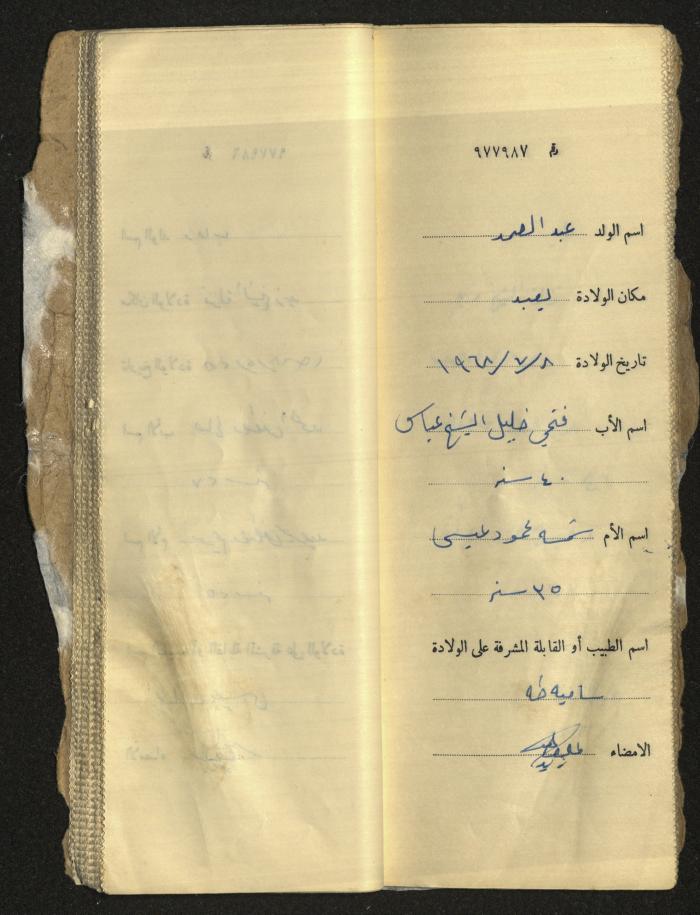 رقم ٩٧٧٩٨٧
اسم الولد عبد الصمد
مكان الولادة يعبد
تاريخ الولادة ٨/٧/١٩٦٨
اسم الأب فتحي خليل الشيخ عباس
٤٠ سنه
اسم الأم شمسه محمود عيسى
٣٥ سنه
اسم الطبيب أو القابلة المشرفة على الولادة
ساميه طه
الامضاء